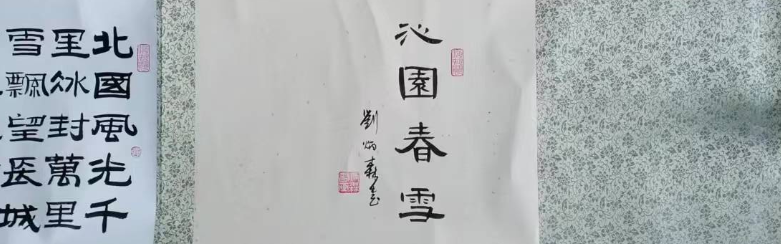 沁園春雪
劉炳森書
北國風光千
里冰封萬里
雪飄望長城